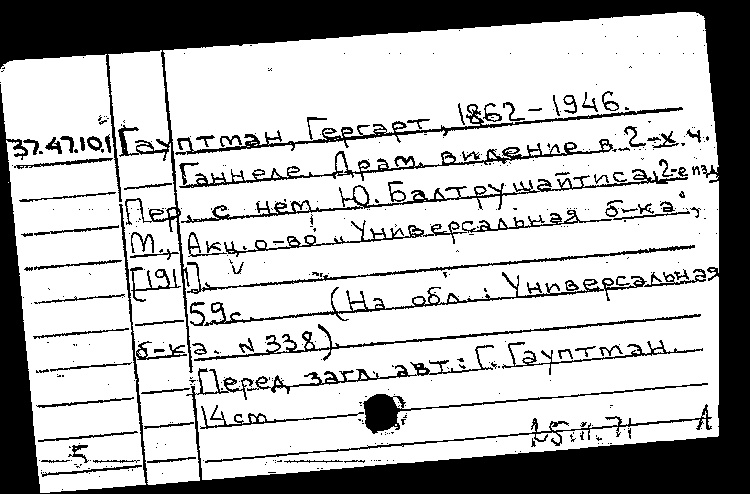 37.47.10.1 Гауптман, Гергарт, 1862-1946.
Ганнеле. Драм. видение в 2-х ч.
Пер. с нем. Ю. Балтрушайтиса, 2-е изд.
М., Акц. о-во „Универсальная б-ка",
[191].
59 с. (На обл.: Универсальная
б-ка. N 338).
Перед загл. авт.: Г. Гауптман.
14 cm.
25.III.71 А
5